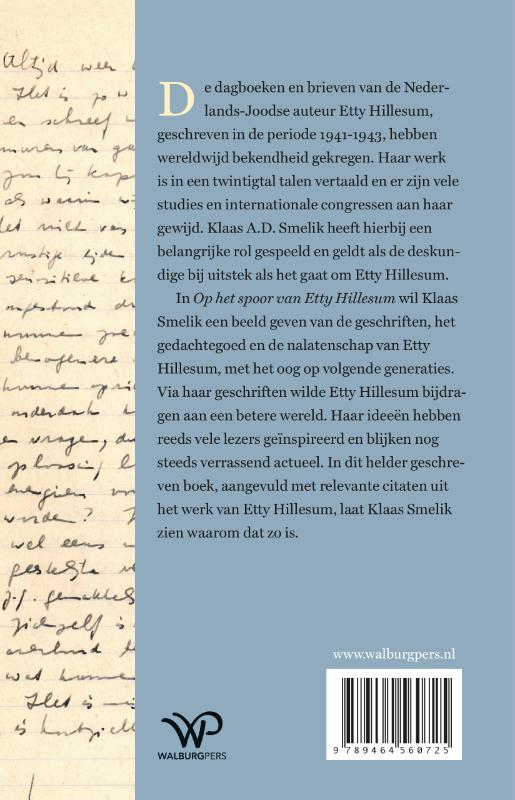 Altijd weer
Het is zo w
en schreef
als waarin
let niet
rustige tijden
sensitieve
ongestoord
kunnen
onderdak
en vragen, du
oplossing
energieën
worden?
wel eens
zichzelf is
wat kunnen
Het is
De dagboeken en brieven van de Neder-
lands-Joodse auteur Etty Hillesum,
geschreven in de periode 1941-1943, hebben
wereldwijd bekendheid gekregen. Haar werk
is in een twintigtal talen vertaald en er zijn vele
studies en internationale congressen aan haar
gewijd. Klaas A.D. Smelik heeft hierbij een
belangrijke rol gespeeld en geldt als de deskun-
dige bij uitstek als het gaat om Etty Hillesum.
In Op het spoor van Etty Hillesum wil Klaas
Smelik een beeld geven van de geschriften, het
gedachtegoed en de nalatenschap van Etty
Hillesum, met het oog op volgende generaties.
Via haar geschriften wilde Etty Hillesum bijdra-
gen aan een betere wereld. Haar ideeën hebben
reeds vele lezers geïnspireerd en blijken nog
steeds verrassend actueel. In dit helder geschre-
ven boek, aangevuld met relevante citaten uit
het werk van Etty Hillesum, laat Klaas Smelik
zien waarom dat zo is.
www.walburgpers.nl
WP
WALBURGPERS
9 789464 560725